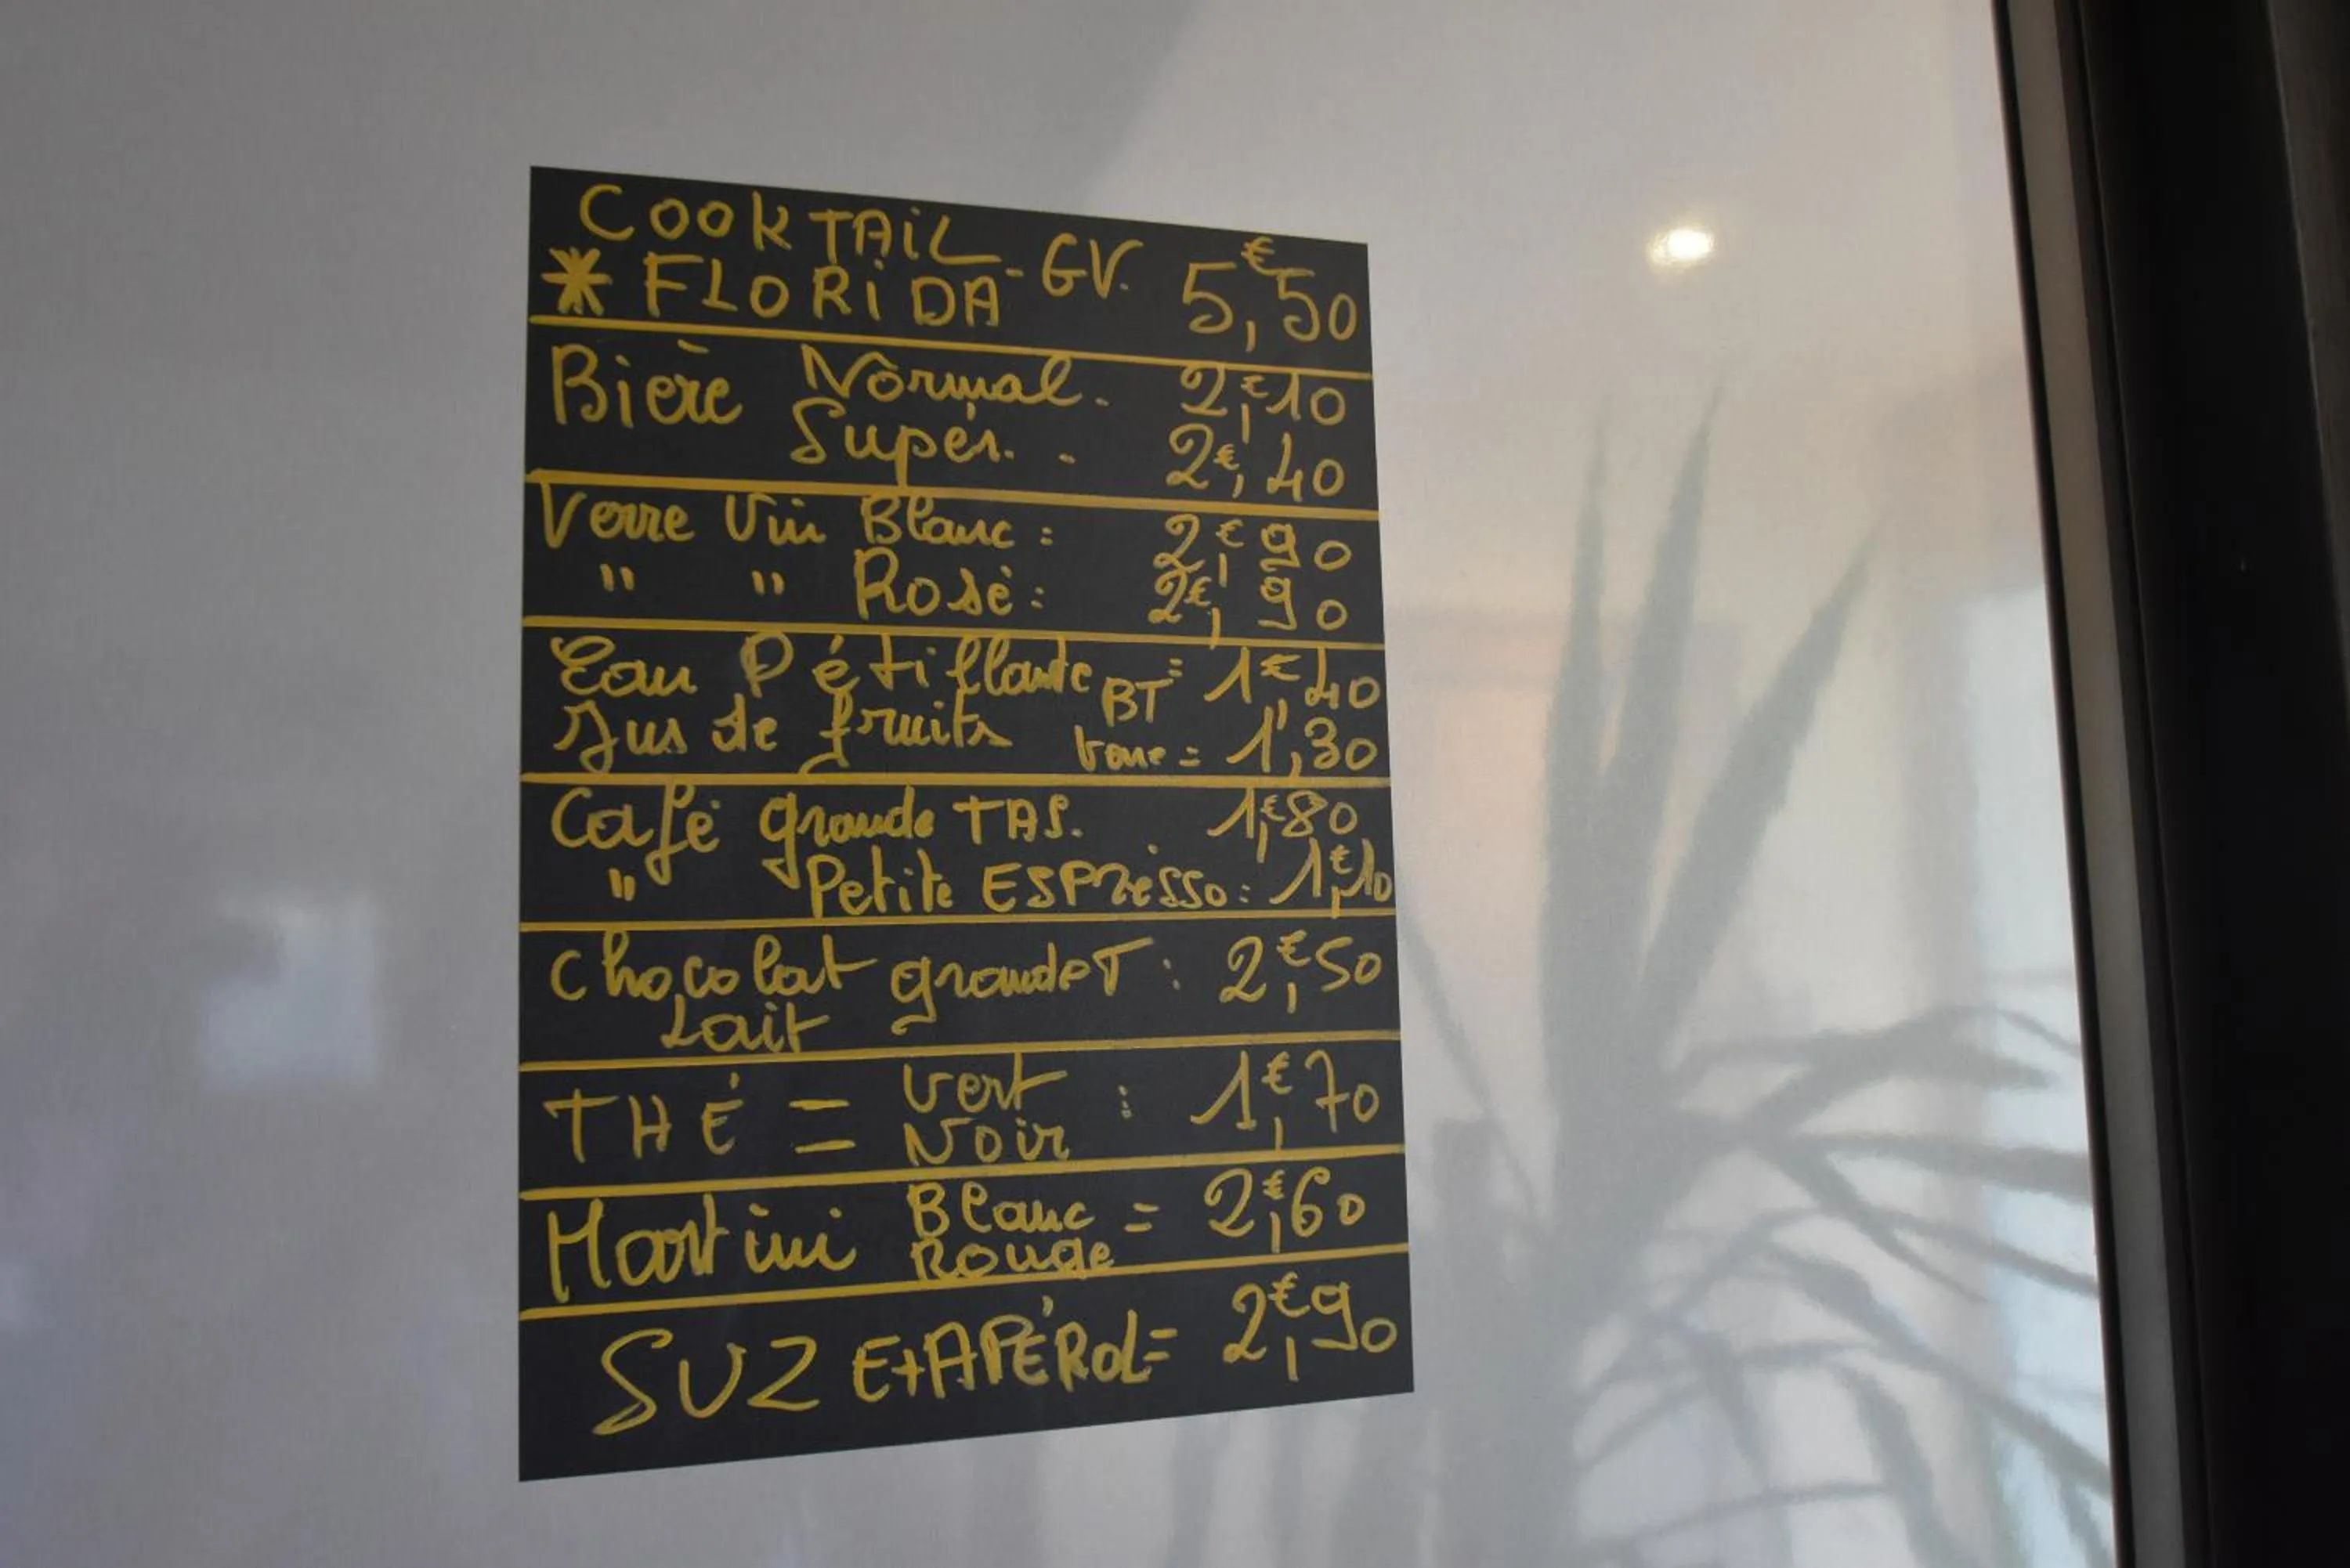 COOKTAIL
* FLORIDA - GV. 5,€50
Bière Normal. 2,€10
Super. . 2€,40
Verre Vin Blanc : 2,€90
" " Rosé : 2€,90
Eau Pétillante BT = 1€,40
Jus de fruits = 1,30
Café grande TAS. 1,€80
" Petite ESPRESSO : 1,€10
Chocolat grande T : 2,€50
Lait
THÉ = Vert : 1,€70
Noir
Martini Blanc = 2,€60
Rouge
SUZ Et APÉROL = 2,€90